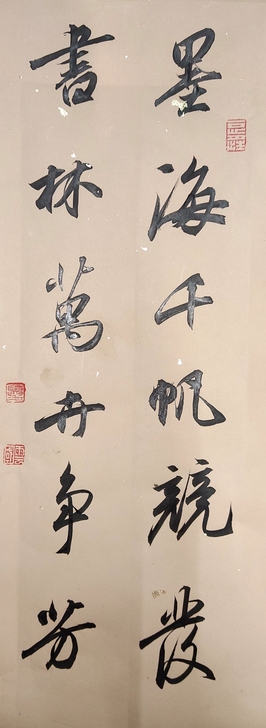 墨海千帆競發
書林萬卉争芳